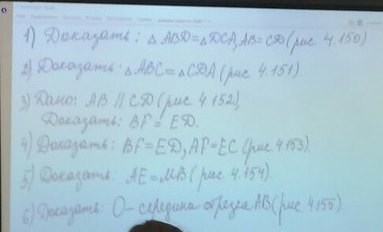 1) Доказать: △ABD=△DCA, AB=CD (рис 4.150)
2) Доказать: △ABC=△CDA (рис 4.151)
3) Дано: AB || CD (рис 4.152)
Доказать: BF = ED.
4) Доказать: BF=ED, AF=EC (рис 4.153)
5) Доказать: AE=MB (рис 4.154)
6) Доказать: O - середина отрезка AB (рис 4.155)